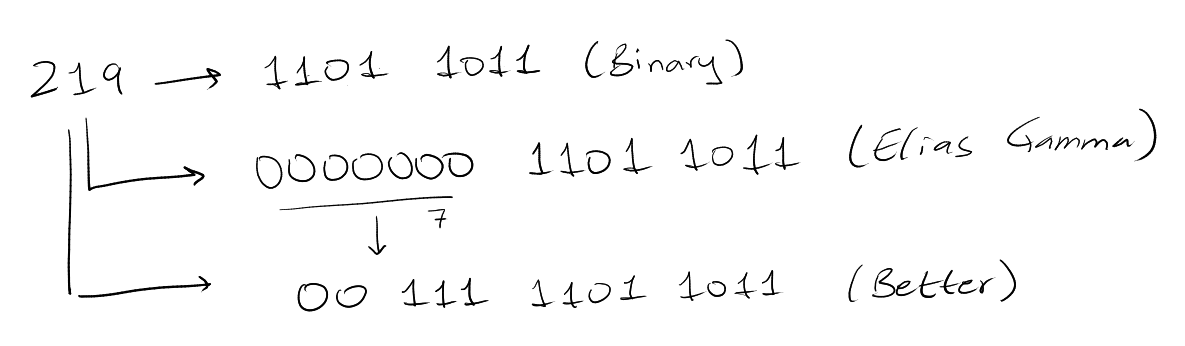 219 → 1101 1011 (Binary)
0000000 1101 1011 (Elias Gamma)
7
00 111 1101 1011 (Better)